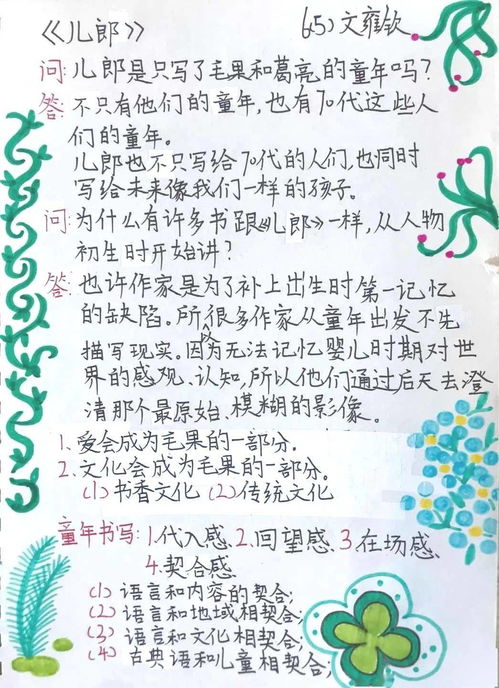 《儿郎》 (65) 文雍钦
问:儿郎是只写了毛果和葛亮的童年吗?
答:不只有他们的童年,也有70代这些人
们的童年。
儿郎也不只写给70代的人们,也同时
写给未来像我们一样的孩子。
问:为什么有许多书跟《儿郎》一样,从人物
初生时开始讲?
答:也许作家是为了补上出生时第一记忆
的缺陷。所以很多作家从童年出发不先
描写现实。因为无法记忆婴儿时期对世
界的感观、认知,所以他们通过后天去澄
清那个最原始、模糊的影像。
1.爱会成为毛果的一部分.
2.文化会成为毛果的一部分.
(1)书香文化 (2)传统文化
童年书写:1.代入感.2.回望感.3.在场感.
4.契合感
(1)语言和内容的契合;
(2)语言和地域相契合;
(3)语言和文化相契合;
(4)古典语和儿童相契合;